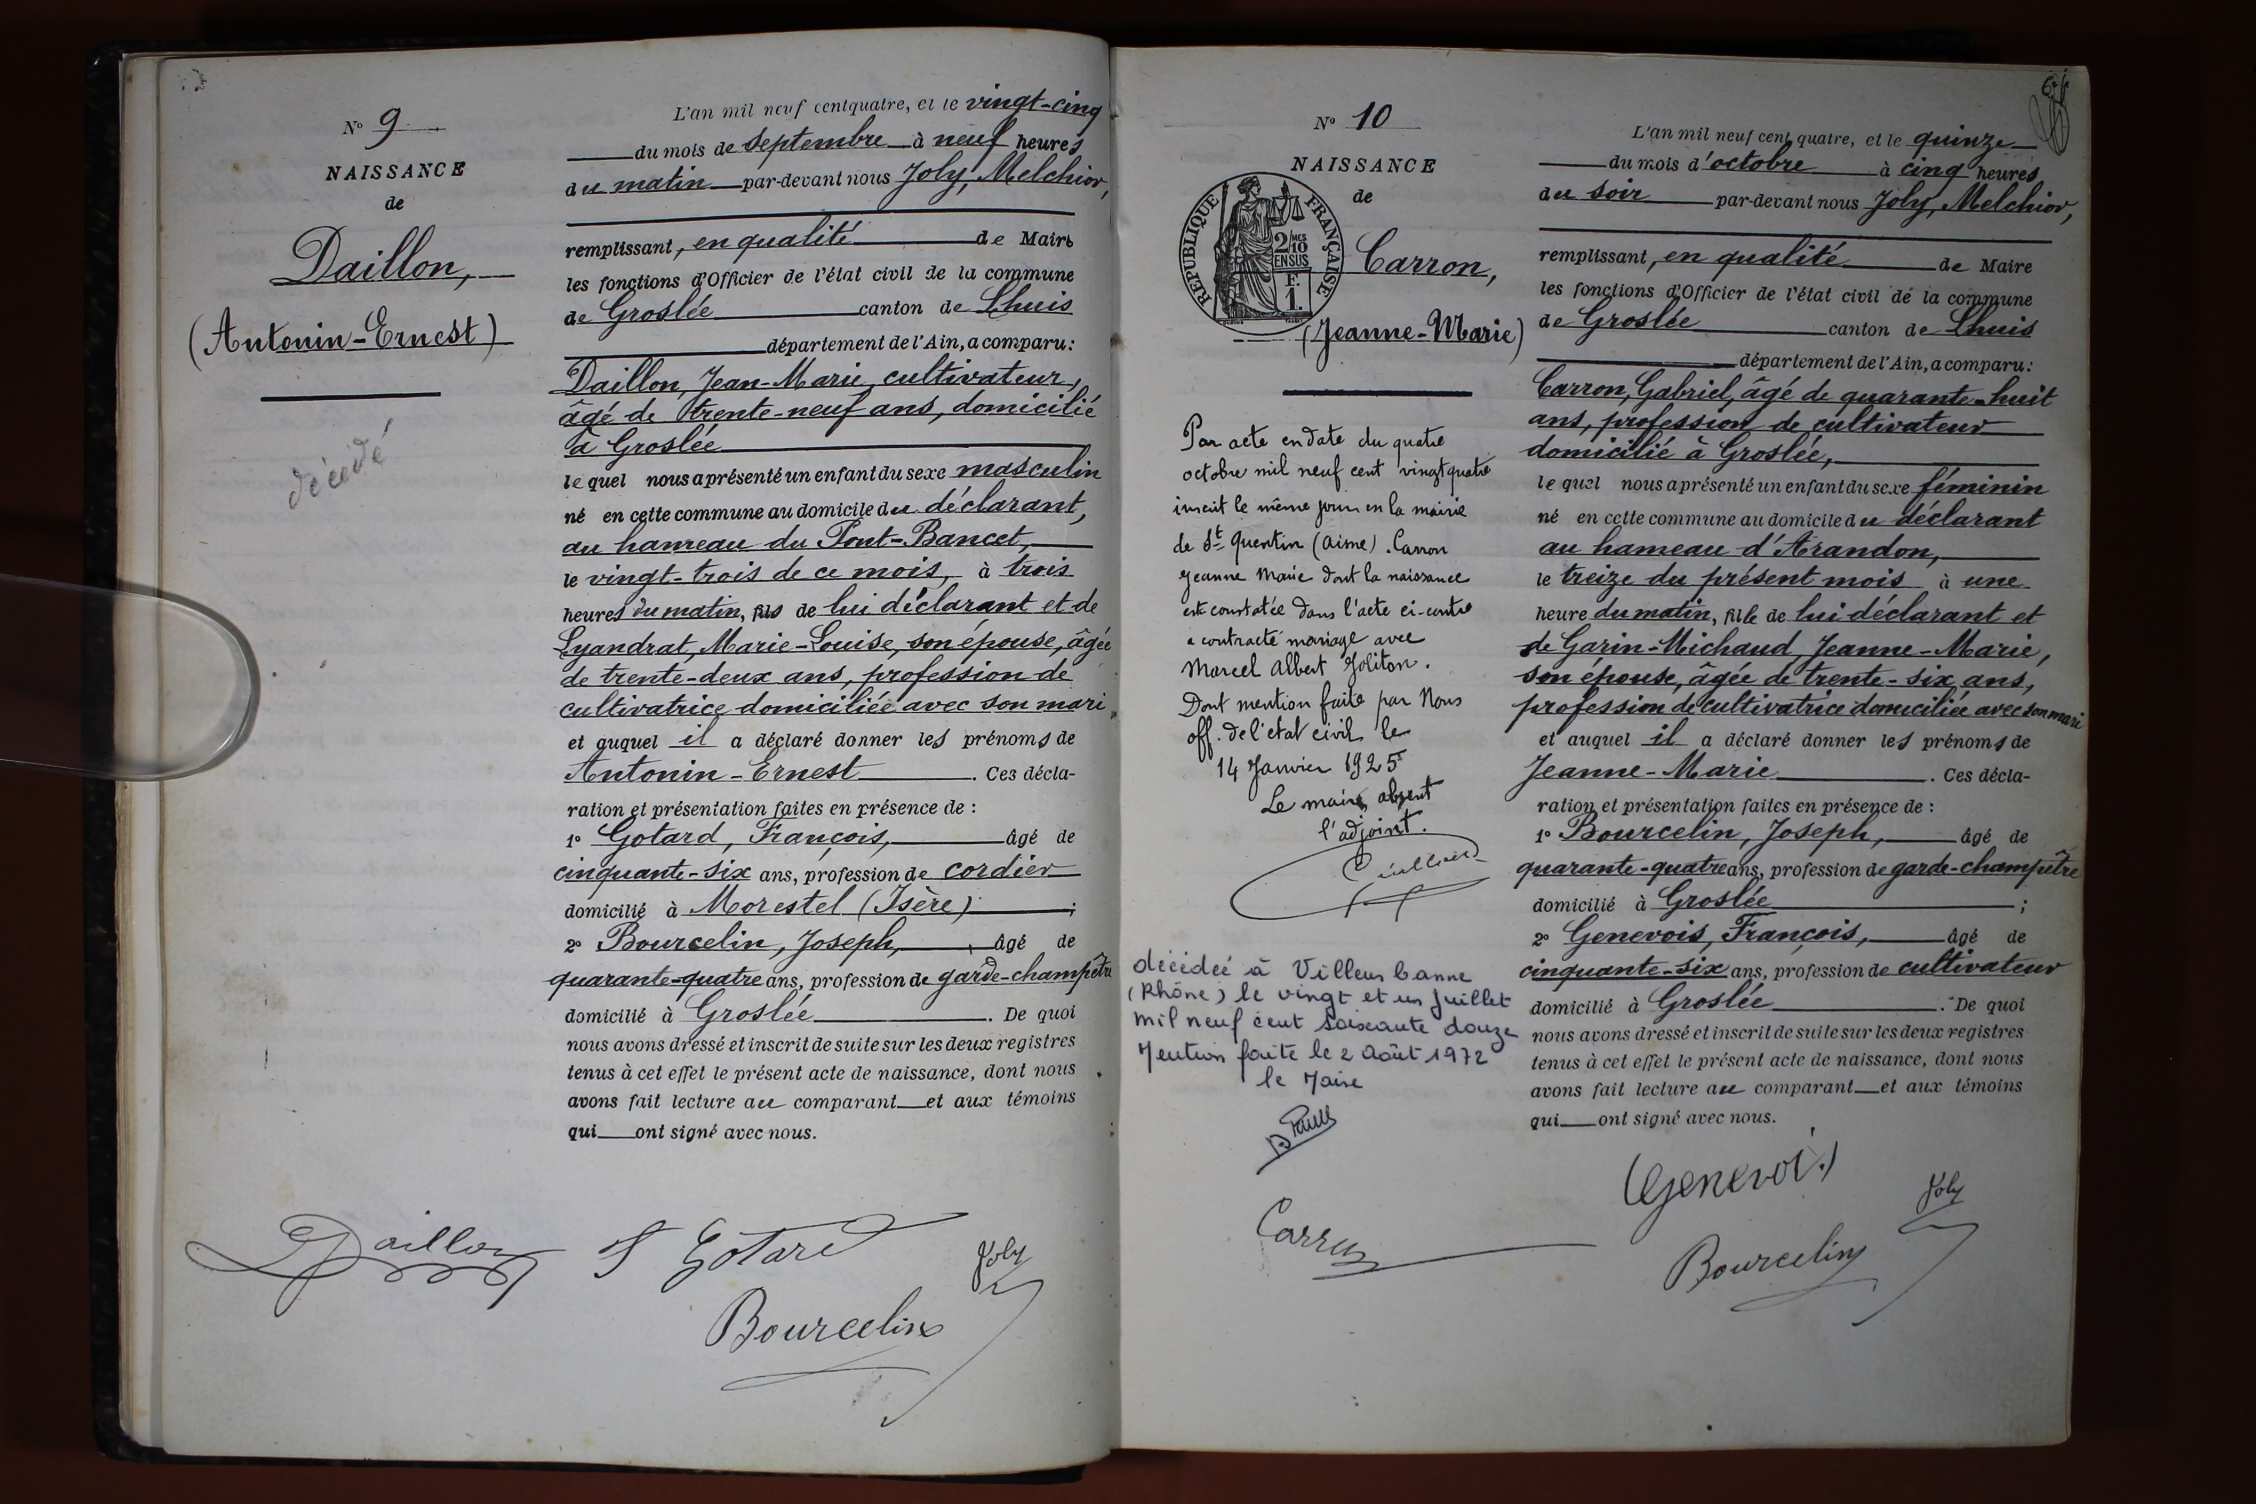 N° 9
NAISSANCE
de
Daillon,
(Antonin-Ernest)
décédé
L'an mil neuf cent quatre, et le vingt-cinq
du mois de septembre à neuf heures
du matin par-devant nous Joly, Melchior,
remplissant, en qualité de Maire
les fonctions d'Officier de l'état civil de la commune
de Groslée canton de Lhuis
département de l'Ain, a comparu :
Daillon, Jean-Marie, cultivateur,
âgé de trente-neuf ans, domicilié
à Groslée
lequel nous a présenté un enfant du sexe masculin
né en cette commune au domicile du déclarant,
au hameau du Pont-Bancet,
le vingt-trois de ce mois, à trois
heures du matin, fils de lui déclarant et de
Lyandrat, Marie-Louise, son épouse, âgée
de trente-deux ans, profession de
cultivatrice domiciliée avec son mari,
et auquel il a déclaré donner les prénoms de
Antonin-Ernest . Ces décla-
ration et présentation faites en présence de :
1° Gotard, François, âgé de
cinquante-six ans, profession de cordier
domicilié à Morestel (Isère) ;
2° Bourcelin, Joseph, âgé de
quarante-quatre ans, profession de garde-champêtre
domicilié à Groslée . De quoi
nous avons dressé et inscrit de suite sur les deux registres
tenus à cet effet le présent acte de naissance, dont nous
avons fait lecture au comparant et aux témoins
qui ont signé avec nous.
Daillon
Gotard
Joly
Bourcelin
N° 10
NAISSANCE
de
RÉPUBLIQUE FRANÇAISE
2/MES
10
EN SUS
F.
1.
Carron,
(Jeanne-Marie)
Par acte en date du quatre
octobre mil neuf cent vingt quatre
inscrit le même jour en la mairie
de St Quentin (Aisne). Carron
Jeanne Marie dont la naissance
est constatée dans l'acte ci-contre
a contracté mariage avec
Marcel Albert Joliton.
Dont mention faite par Nous
off. de l'état civil le
14 Janvier 1925
Le maire absent
l'adjoint.
décédée à Villeurbanne
(Rhône) le vingt et un Juillet
mil neuf cent soixante douze
Mention faite le 2 Août 1972
le Maire
L'an mil neuf cent quatre, et le quinze
du mois d'octobre à cinq heures
du soir par-devant nous Joly, Melchior,
remplissant, en qualité de Maire
les fonctions d'Officier de l'état civil de la commune
de Groslée canton de Lhuis
département de l'Ain, a comparu :
Carron, Gabriel, âgé de quarante-huit
ans, profession de cultivateur
domicilié à Groslée,
lequel nous a présenté un enfant du sexe féminin
né en cette commune au domicile du déclarant
au hameau d'Arandon,
le treize du présent mois à une
heure du matin, fille de lui déclarant et
de Garin-Michaud, Jeanne-Marie,
son épouse, âgée de trente-six ans,
profession de cultivatrice domiciliée avec son mari
et auquel il a déclaré donner les prénoms de
Jeanne-Marie . Ces décla-
ration et présentation faites en présence de :
1° Bourcelin, Joseph, âgé de
quarante-quatre ans, profession de garde-champêtre
domicilié à Groslée ;
2° Genevois, François, âgé de
cinquante-six ans, profession de cultivateur
domicilié à Groslée . De quoi
nous avons dressé et inscrit de suite sur les deux registres
tenus à cet effet le présent acte de naissance, dont nous
avons fait lecture au comparant et aux témoins
qui ont signé avec nous.
Genevois
Joly
Carron
Bourcelin